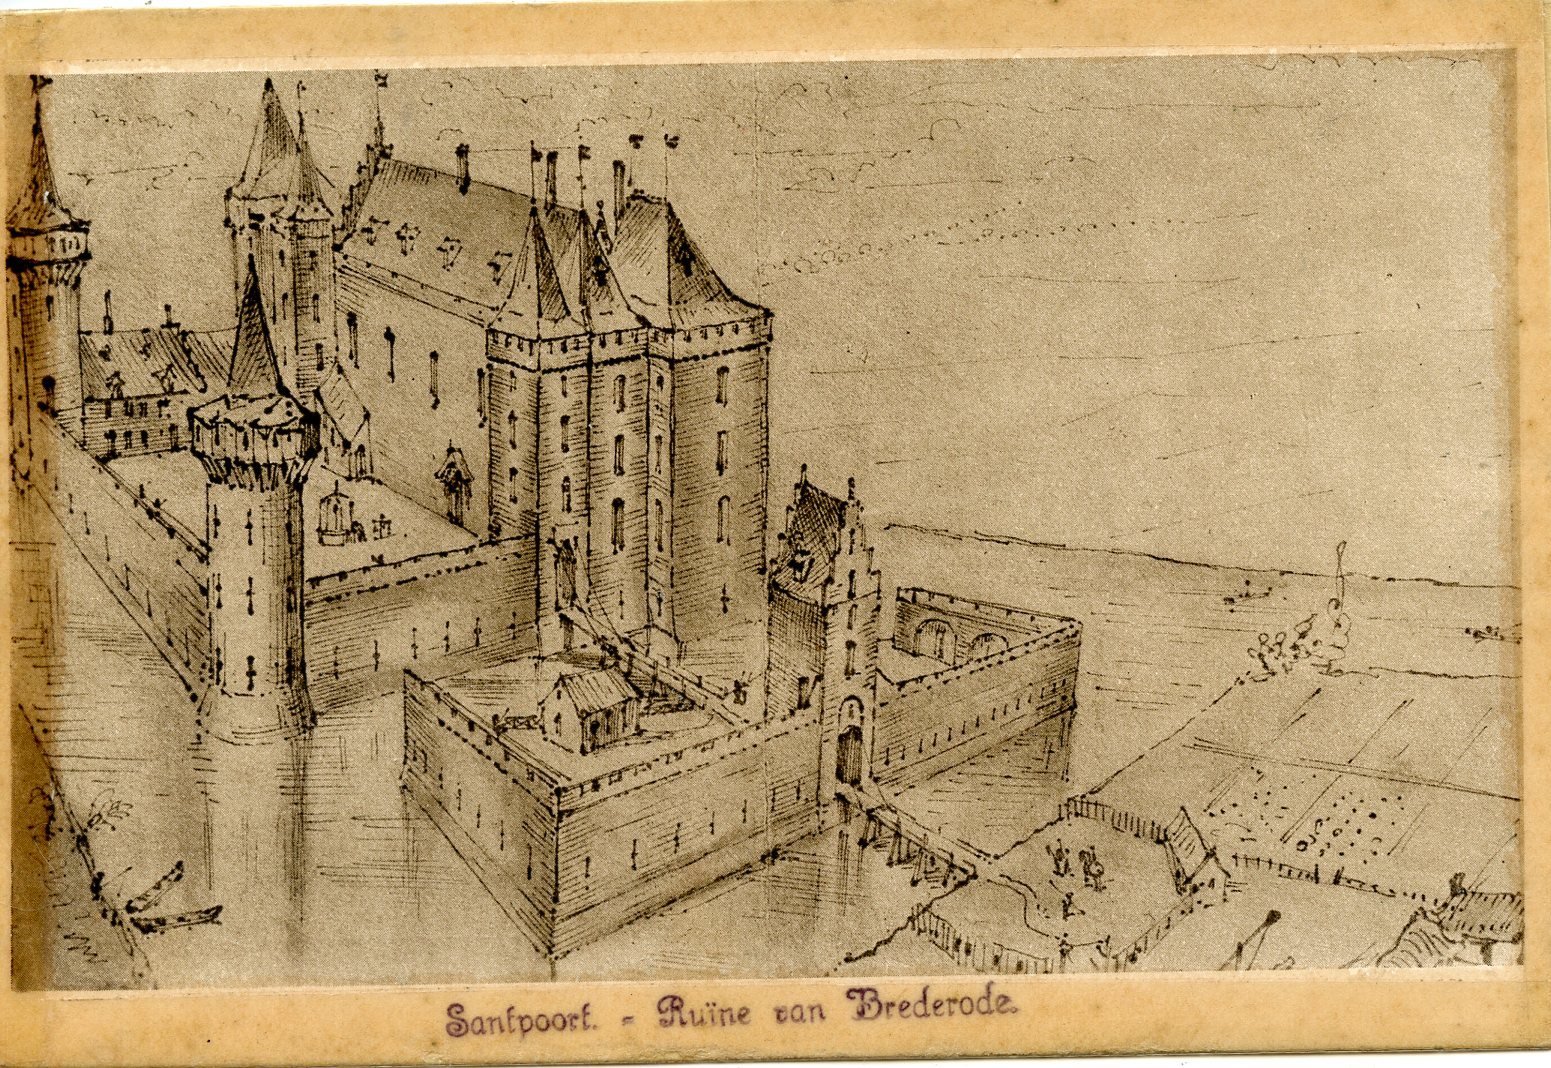 Santpoort. - Ruïne van Brederode.